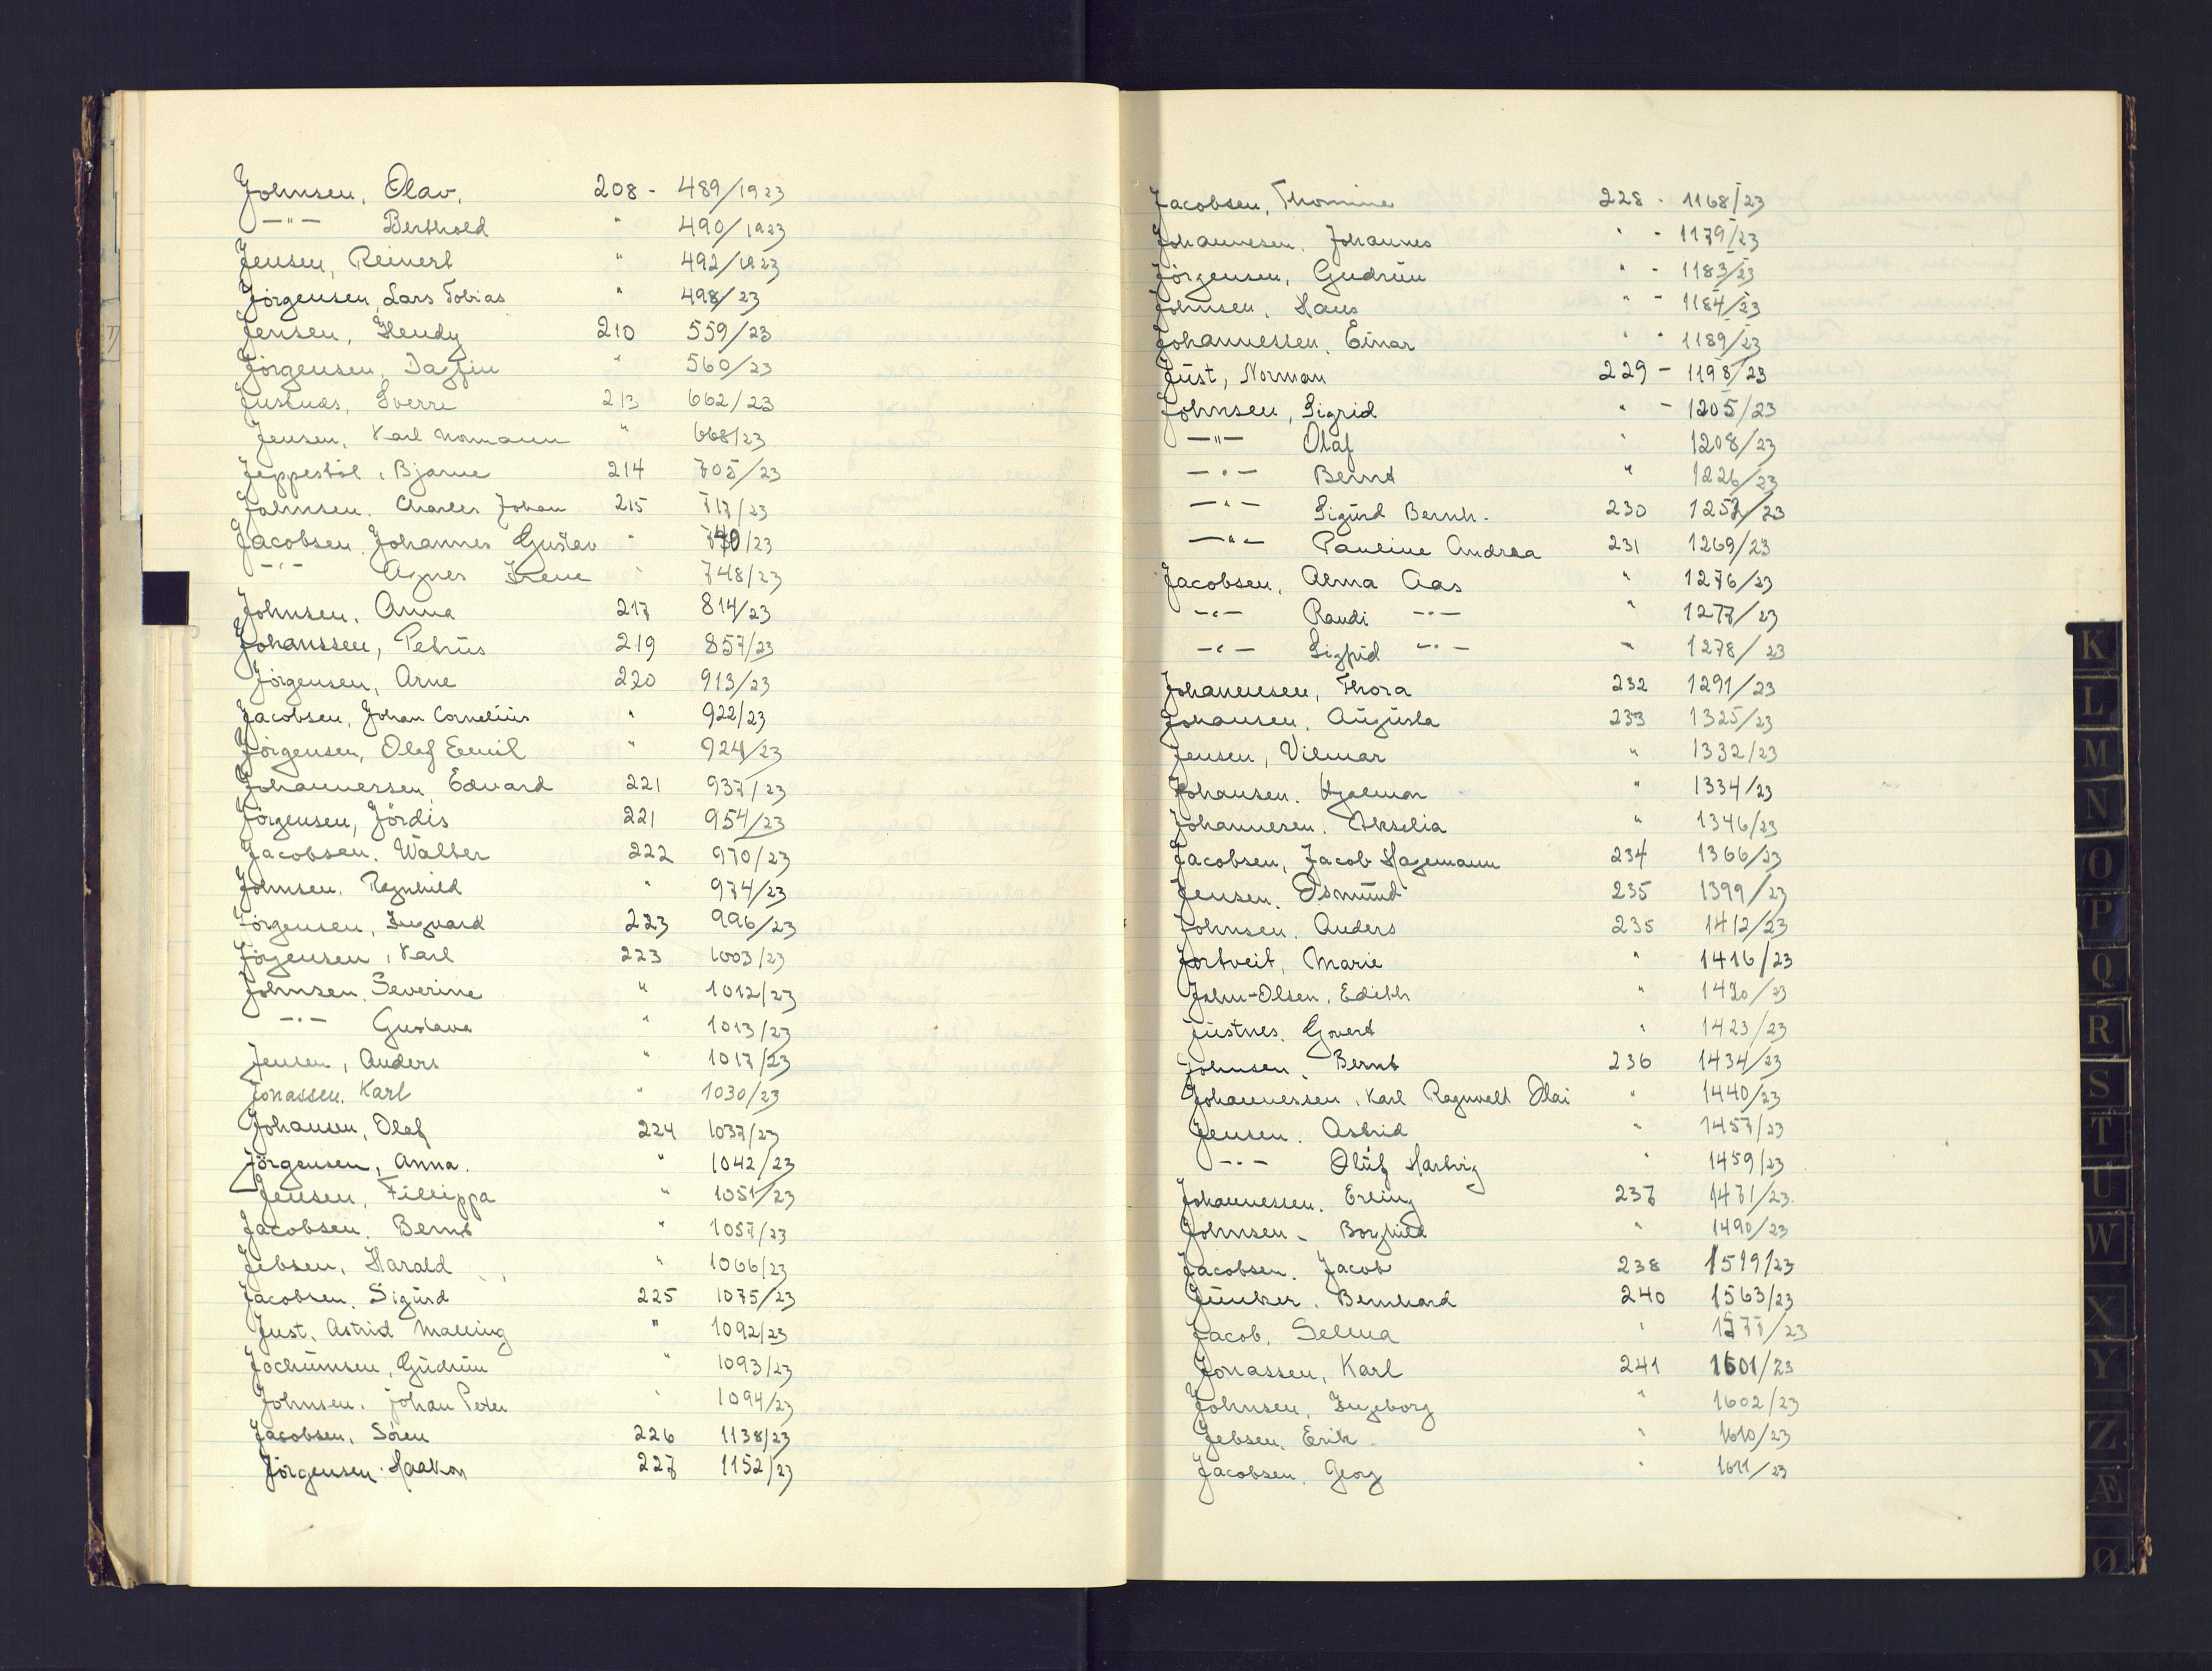 Johnsen, Olav, 208 - 489/1923
—"— Berthold " 490/1923
Jensen, Reinert " 492/1923
Jörgensen, Lars Tobias " 498/23
Jensen, Hendy 210 559/23
Jörgensen, Dagfin " 560/23
Justnæs, Sverre 213 662/23
Jensen, Karl Normann " 668/23
Jeppestöl, Bjarne 214 705/23
Johnsen. Charles Johan 215 717/23
Jacobsen. Johannes Gustav " 740/23
—"— Agnes Irene " 748/23
Johnsen, Anna 217 814/23
Johanssen, Petrus 219 857/23
Jörgensen, Arne 220 913/23
Jacobsen, Johan Cornelius " 922/23
Jörgensen, Olaf Emil " 924/23
Johannessen, Edvard 221 937/23
Jörgensen, Jördis 221 954/23
Jacobsen. Walter 222 970/23
Johnsen. Ragnhild " 974/23
Jörgensen, Ingvard 223 996/23
Jörgensen, Karl 223 1003/23
Johnsen. Severine " 1012/23
—"— Gustava " 1013/23
Jensen, Anders " 1017/23
Jonassen. Karl " 1030/23
Johansen, Olaf 224 1037/23
Jörgensen, Anna. " 1042/23
Jensen, Fillippa " 1051/23
Jacobsen. Bernt " 1057/23
Jebsen, Harald " 1066/23
Jacobsen. Sigurd 225 1075/23
Just. Astrid Malling " 1092/23
Jochumsen, Gudrun " 1093/23
Johnsen. Johan Peter " 1094/23
Jacobsen, Sören 226 1138/23
Jörgensen. Haakon 227 1152/23
Jacobsen, Thomine 228 - 1168/23
Johannesen. Johannes " - 1179/23
Jörgensen, Gudrun " - 1183/23
Johnsen, Hans " - 1184/23
Johannessen. Einar " - 1189/23
Just, Norman 229 - 1198/23
Johnsen, Sigrid " - 1205/23
—"— Olaf " 1208/23
—"— Bernt " 1226/23
—"— Sigurd Bernh. 230 1252/23
—"— Pauline Andrea 231 1269/23
Jacobsen, Alma Aas " 1276/23
—"— Randi —"— " 1277/23
—"— Sigfrid —"— " 1278/23
Johannesen, Thora 232 1291/23
Johansen, Augusta 233 1325/23
Jensen, Vilmar " 1332/23
Johansen. Hjalmar " 1334/23
Johannesen. Akselia " 1346/23
Jacobsen, Jacob Hagemann 234 1366/23
Jensen. Osmund 235 1399/23
Johnsen. Anders 235 1412/23
Jortveit, Marie " 1416/23
John-Olsen, Edith " 1420/23
Justnes. Govert " 1423/23
Johnsen, Bernt 236 1434/23
Johannessen, Karl Ragnvalt Olai " 1440/23
Jensen. Astrid " 1457/23
—"— Oluf Hartvig " 1459/23
Johannessen. Erling 237 1471/23.
Johnsen - Borghild " 1490/23
Jacobsen. Jacob 238 1519/23
Junker. Bernhard 240 1563/23
Jacob, Selma " 1577/23
Jonassen, Karl 241 1601/23
Johnsen, Ingeborg " 1602/23
Jebsen, Erik " 1610/23
Jacobsen, Georg " 1611/23
K
L
M
N
O
P
Q
R
S
T
U
W
X
Y
Z
Æ
Ø